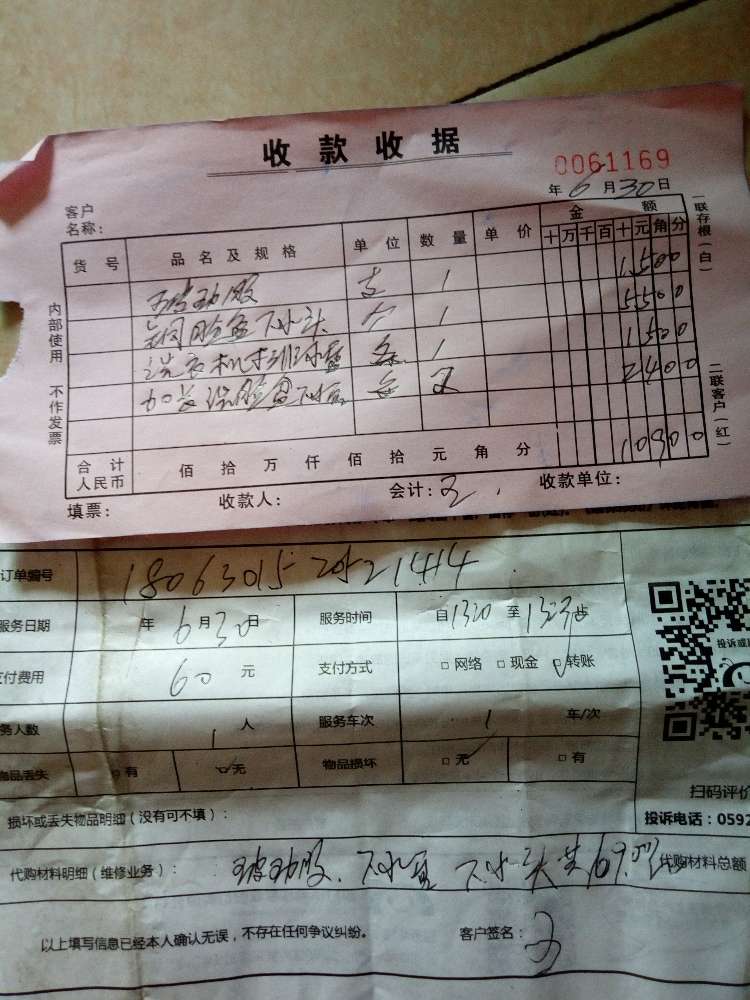 收款收据
0061169
年6月30日
客户
名称：
货号 品名及规格 单位 数量 单价 金额
十万千百十元角分
玻璃胶 支 1 1500
铜脸盆下水头 个 1 5500
洗衣机排水管 条 1 1500
加长洗脸盆下水管 条 2 2400
合计
人民币 佰拾万仟佰拾元角分 10900
填票： 收款人： 会计： 收款单位：
内部使用 不作发票
一联存根（白）
二联客户（红）
订单编号
服务日期 年6月30日 服务时间 自1320至
付费用 60元 支付方式 □网络 □现金 □转账
务人数 1人 服务车次 1 车/次
物品丢失 □有 □无 物品损坏 □无 □有
损坏或丢失物品明细（没有可不填）：
代购材料明细（维修业务）： 玻璃胶 下水 下水头 代购材料总额
以上填写信息已经本人确认无误，不存在任何争议纠纷。 客户签名：
投诉或
扫码评价
投诉电话：0592